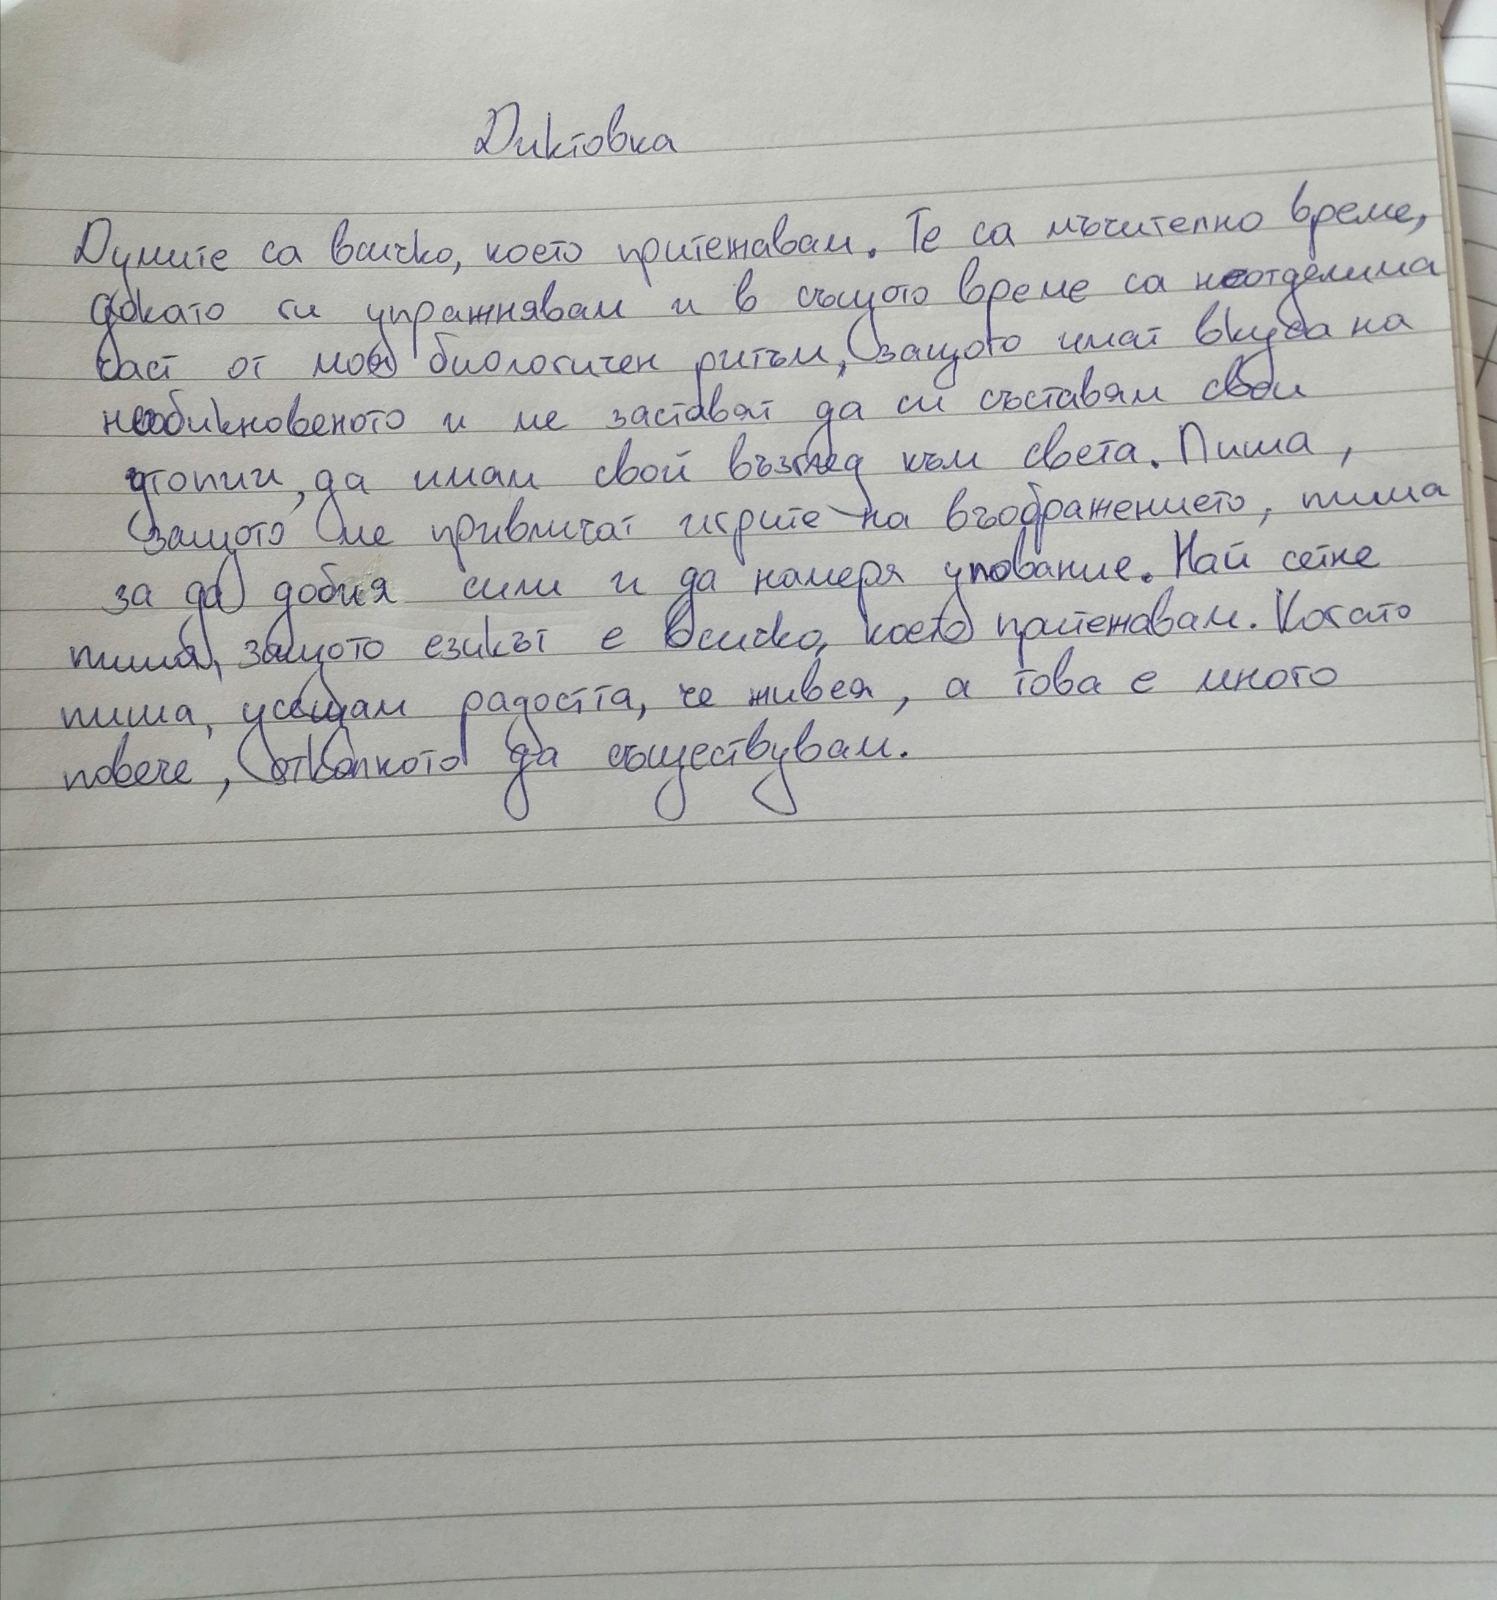 Диктовка
Думите са всичко, което притежавам. Те са мъчително време,
докато ги упражнявам и в същото време са неотделима
част от моя биологичен ритъм, защото имат вкуса на
необикновеното и ме заставят да си съставям свои
утопии, да имам свой възглед към света. Пиша,
защото ме привличат игрите на въображението, пиша
за да добия сили и да намеря упование. Най сетне
пиша, защото езикът е всичко, което притежавам. Когато
пиша, усещам радостта, че живея, а това е много
повече, отколкото да съществувам.